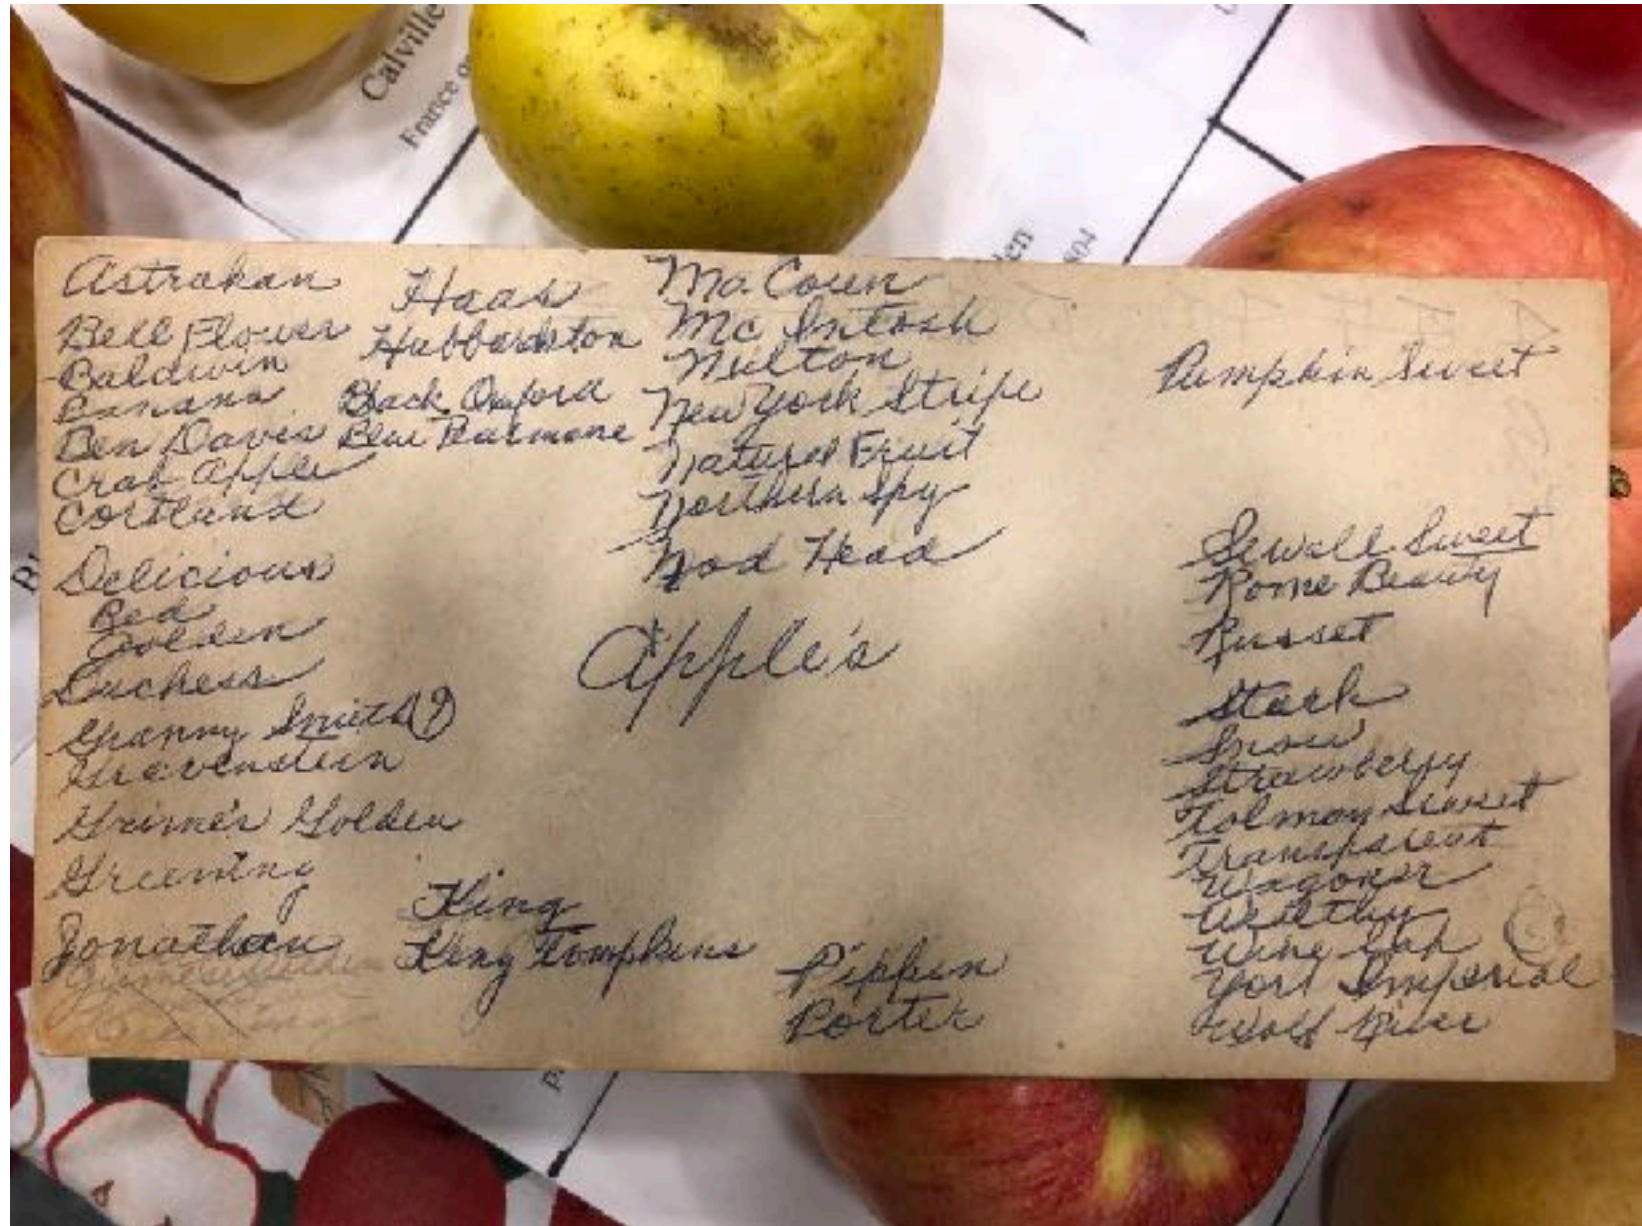 Calville
France
Astrakan
Bell Flower
Baldwin
Banana
Ben Davis
Crab Apple
Cortland
Delicious
Red
Golden
Duchess
Granny Smith (?)
Gravenstein
Grime's Golden
Greening
Jonathan
Haas
Hubbardston
Black Oxford
Blue Pearmane
King
King Tompkins
Ma. Coun
Mc Intosh
Milton
New York Stripe
Natural Fruit
Northern Spy
Nod Head
Apple's
Pippin
Porter
Pumpkin Sweet
Sewall Sweet
Rome Beauty
Russet
Stark
Snow
Strawberry
Tolman Sweet
Transparent
Wagoner
Wealthy
Wine Sap
York Imperial
Wolf River